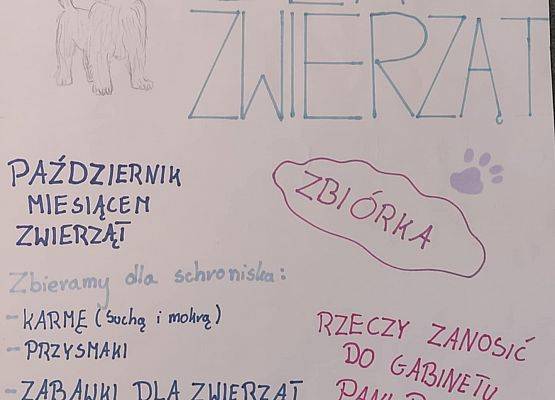 ZWIERZĄT
PAŹDZIERNIK
MIESIĄCEM
ZWIERZĄT
ZBIÓRKA
Zbieramy dla schroniska:
- KARMĘ (suchą i mokrą)
- PRZYSMAKI
- ZABAWKI DLA ZWIERZĄT
RZECZY ZANOSIĆ
DO GABINETU
PANI